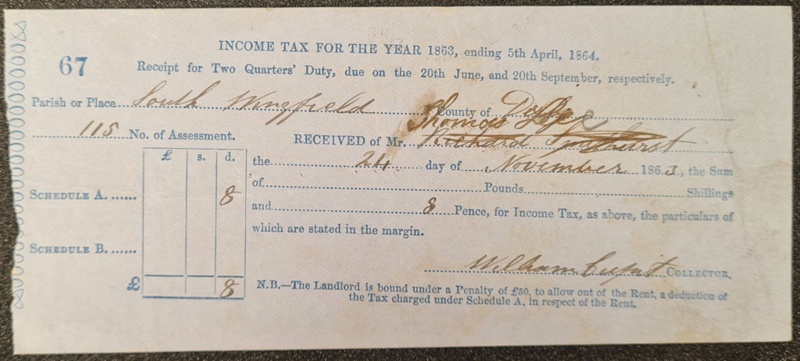 INCOME TAX FOR THE YEAR 1863, ending 5th April, 1864.
67
Receipt for Two Quarters' Duty, due on the 20th June, and 20th September, respectively.
Parish or Place South Wingfield County of
115 No. of Assessment.
Thomas
RECEIVED of Mr. Richard
£ s. d.
the 24 day of November 1863, the Sum
of Pounds Shillings
SCHEDULE A. 8
and 8 Pence, for Income Tax, as above, the particulars of
which are stated in the margin.
SCHEDULE B.
William COLLECTOR.
£ 8
N.B.—The Landlord is bound under a Penalty of £50, to allow out of the Rent, a deduction of
the Tax charged under Schedule A, in respect of the Rent.